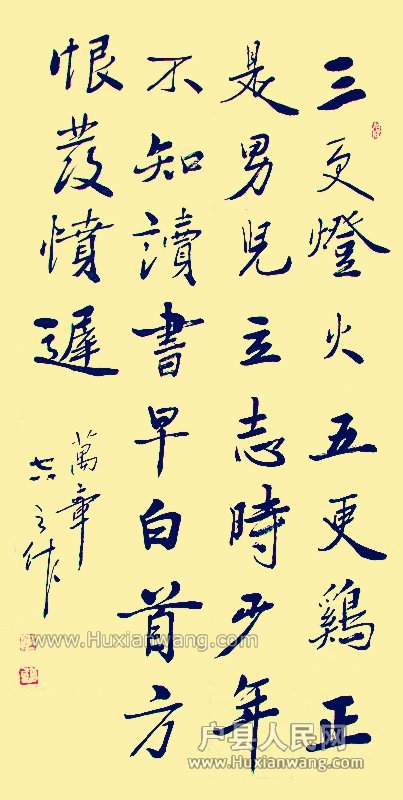 三更燈火五更鷄正
是男兒立志時少年
不知讀書早白首方
恨發憤遲
萬章
www.Huxianwang.com
户县人民网
www.Huxianwang.com